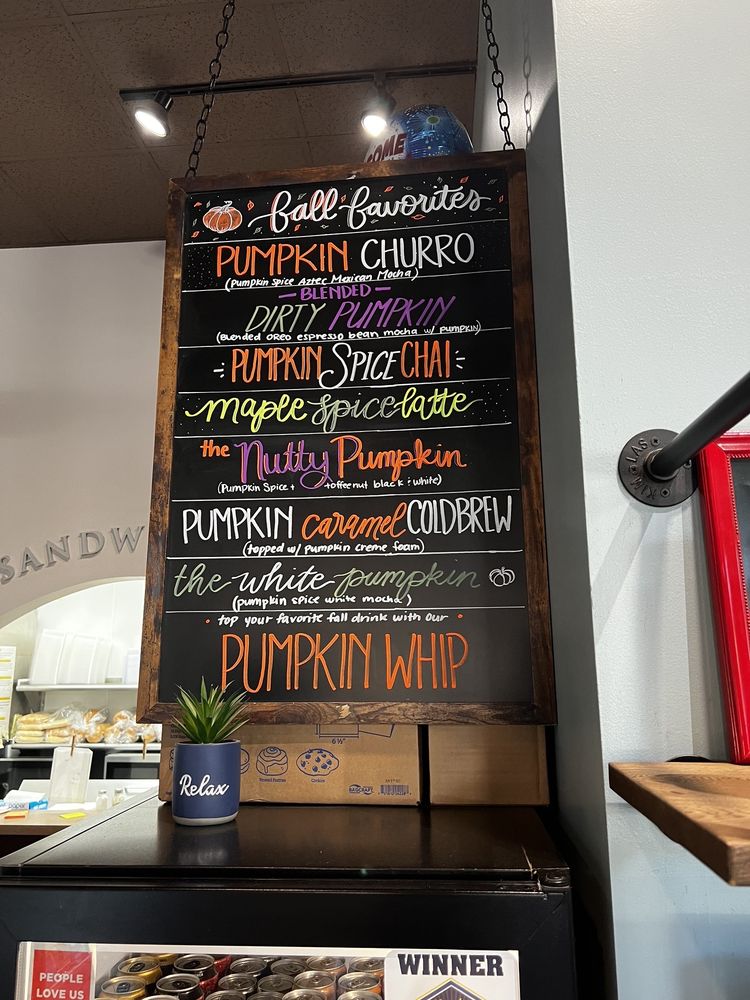 COME
fall favorites
PUMPKIN CHURRO
(Pumpkin Spice Aztec Mexican Mocha)
BLENDED
DIRTY PUMPKIN
(Blended oreo espresso bean mocha w/ pumpkin)
PUMPKIN SPICE CHAI
maple spice latte
the Nutty Pumpkin
(Pumpkin Spice + toffee nut black & white)
PUMPKIN caramel COLDBREW
(topped w/ pumpkin creme foam)
the white pumpkin
(pumpkin spice white mocha)
top your favorite fall drink with our
PUMPKIN WHIP
SANDW
LAS
6 ½"
Cookies
BAGCRAFT
Relax
PEOPLE
LOVE US
WINNER